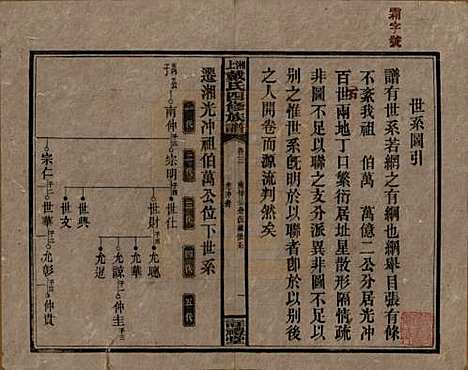 霸字號
世系圖引
譜有世系若網之有綱也網舉目張有條
不紊我祖伯萬 萬億二公分居光冲
百世兩地丁口繁衍居址星散形隔情疏
非圖不足以聯之支分派異非圖不足以
別之惟世系既明於以聯者即於以別後
之人開卷而源流判然矣
上湘戴氏四修族譜
卷三
一
遷湘光冲祖伯萬公位下世系
一代
二代
三代
四代
五代
子二
南仲
宗明
世仕
世財
允聰
仲圭
允諒
允華
允遑
世興
世文
宗仁
世華
允彰
仲貴